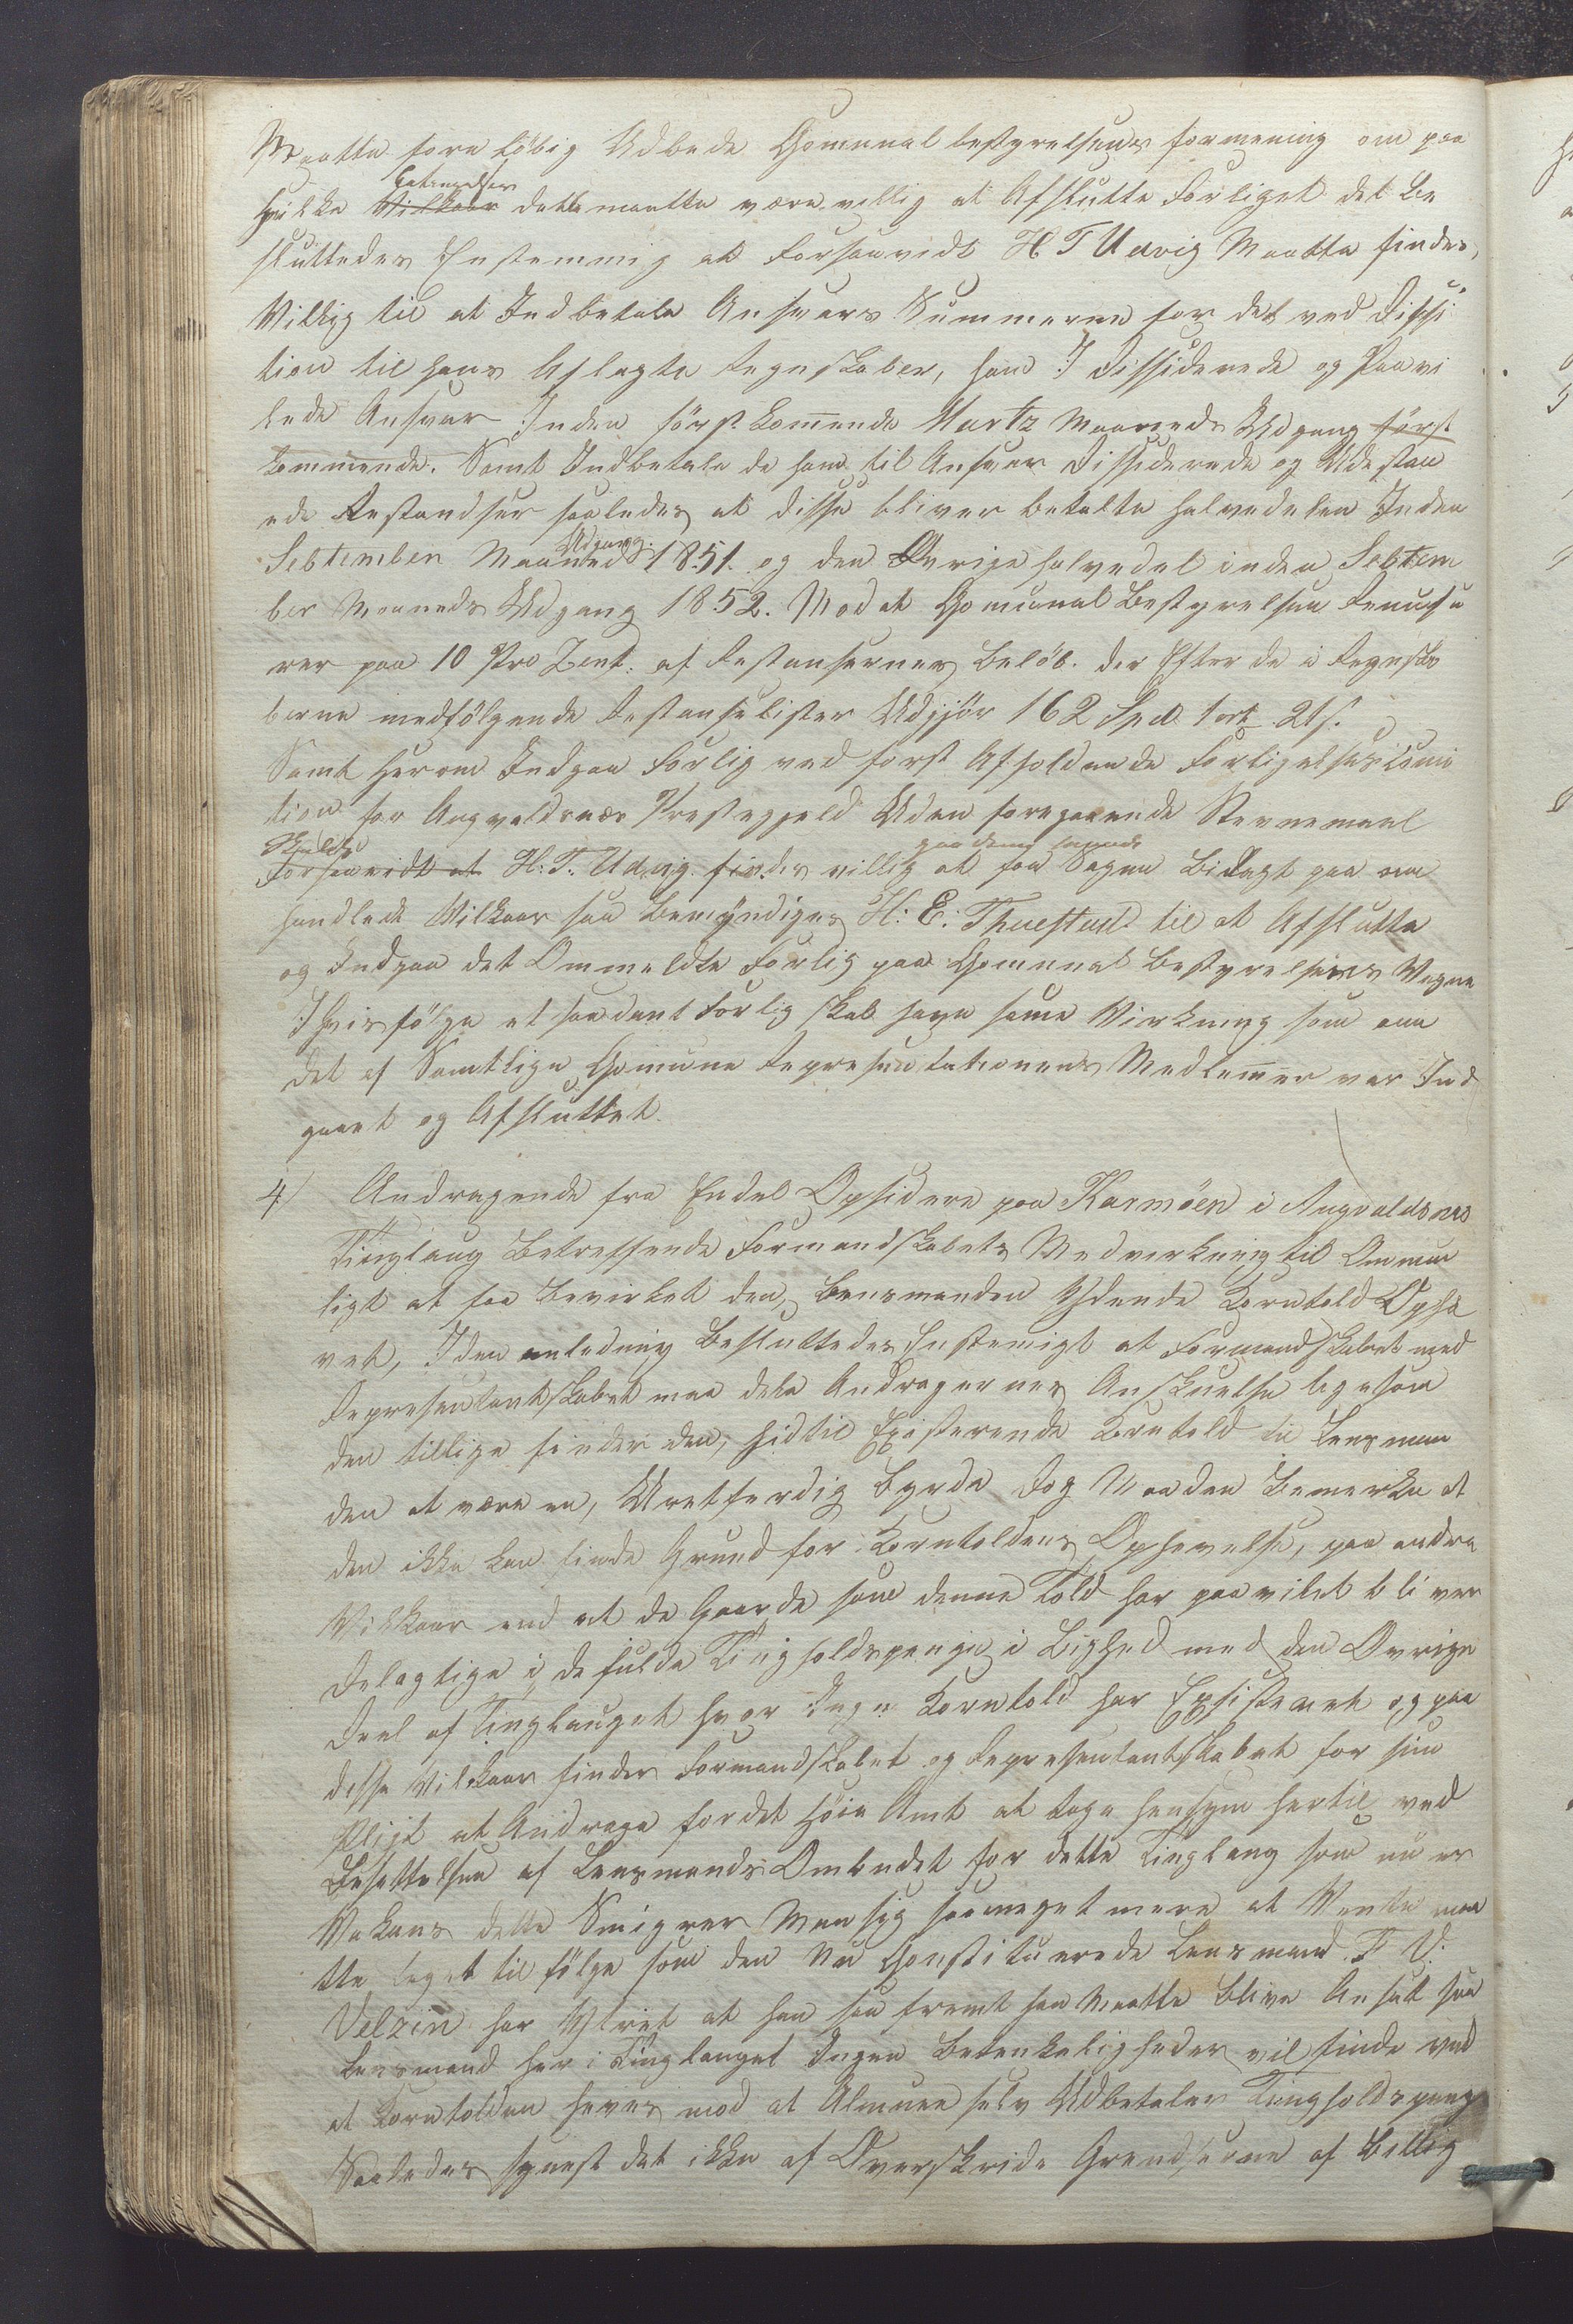 Maatte fore löbig Udbede Comunalbestyrelsens formening om paa
hvilke Vilkaar Betingelser dette maatte være villig at Afslutte Forliget det be
sluttedes Enstemmig at forsaavidt H T Udvig Maatte findes,
Villig til at Indbetale Ansvars Summerne for det ved Dissi
tion til hans Aflagte Regnskaber, som I dissiderede og Paavi
lede Ansvar Inden förstkommende Martz Maaneds Udgang först
kommende. Samt Indbetale de ham til Ansvar Dissiderede og Udestaa
ende Restandser saaledes at disse bliver betalte halvedelen Inden
Sebtember Maaned Udgang. 1851. og den Övrige halvedel inden Sebtem
ber Maaneds Udgang 1852. Mod at Comunal Bestyrelsen Renunse
rer paa 10 Pro Zent. af Restansernes belöb. der Efter de i Regnska
berne medfölgende Restanselister Udgjör 162 Spd. 1 ort 21 s.
Samt herom Indgaa Forlig ved først Afholdende Forligelses Comi
tion for Augvaldsnæs Prestegjeld Uden foregaaende Stevnemaal
Skulde Forsaavidt at H. T. Udvig. findes villig at faa Sagen Bilagt paa om
handlede Vilkaar saa bemyndiges H: E: Thuestad til at Afslutte
og Indgaa det Ommeldte Forlig paa Comunal Bestyrelsens Vegne
I hvis fölge et saadant Forlig skal have same Virkning som om
det af Samtlige Comune Representationens Medlemmer var Ind
gaaet og Afsluttet.
4/ Andragende fra Endel Opsidere paa Karmöen i Augvaldsnes
Tinglaug Betreffende Formandskabets Medvirkning til Ommu
ligt at faa bevirket den, Lensmanden Ydende Korntold Ophæ
vet, I den anledning Besluttedes Enstemigt at Formandskabet med
Representantskabet maa dele Andragernes Anskuelse ligesom
den tillige finder den, hidtil Existerende Korntold til Lensman
den at være en, Uretferdig byrde dog Maa den Bemerke at
den ikke kan finde Grund for Korntoldens Ophevelse, paa andre
Vilkaar end at de Gaarde som denne Told har paavilet bliver
Delagtige i de fulde Tingholdspenge i Lighed med den Øvrige
Deel af Tinglauget hvor Ingen Korntold har Exsisteret og paa
disse Vilkaar finder Formandskabet og Representantskabet for sin
Pligt at Andrage for det höie Amt at tage hensyn hertil ved
Besettelsen af Lensmands Ombudet for dette Tinglaug som nu er
Vakans dette Smigrer Man sig saameget mere at Vente maa
tte taget til fölge som den Nu Constituerede Lensmand F V.
Velzin har Ytret at han saa fremt han Maatte blive Ansat som
Lensmand her i Tinglauget Ingen Betenkeligheder vil finde ved
at Korntolden heves mod at Almuen selv Udbetaler Tingholdspenge
Saaledes synest det ikke at Overskride Grendserne af Billig